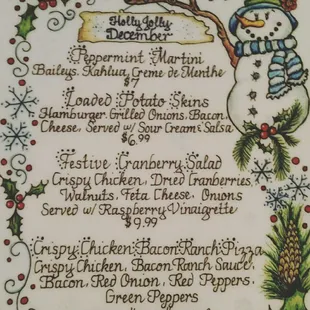 Holly Jolly
December
Peppermint Martini
Baileys, Kahlua, Creme de Menthe
$7
Loaded Potato Skins
Hamburger, Grilled Onions, Bacon,
Cheese, Served w/ Sour Cream & Salsa
$6.99
Festive Cranberry Salad
Crispy Chicken, Dried Cranberries,
Walnuts, Feta Cheese, Onions
Served w/ Raspberry Vinaigrette
$9.99
Crispy Chicken Bacon Ranch Pizza
Crispy Chicken, Bacon Ranch Sauce,
Bacon, Red Onion, Red Peppers,
Green Peppers